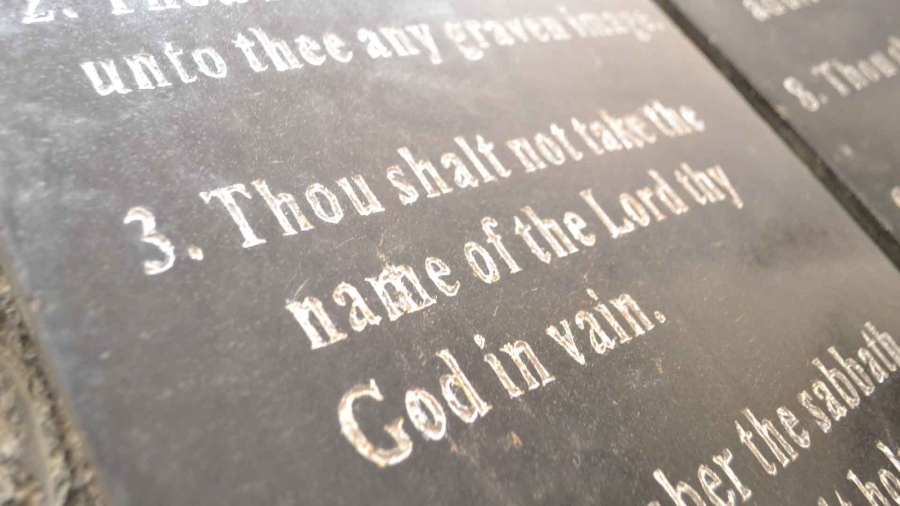 2. Thou
unto thee any graven image.
3. Thou shalt not take the
name of the Lord thy
God in vain.
the sabbath
8. Thou